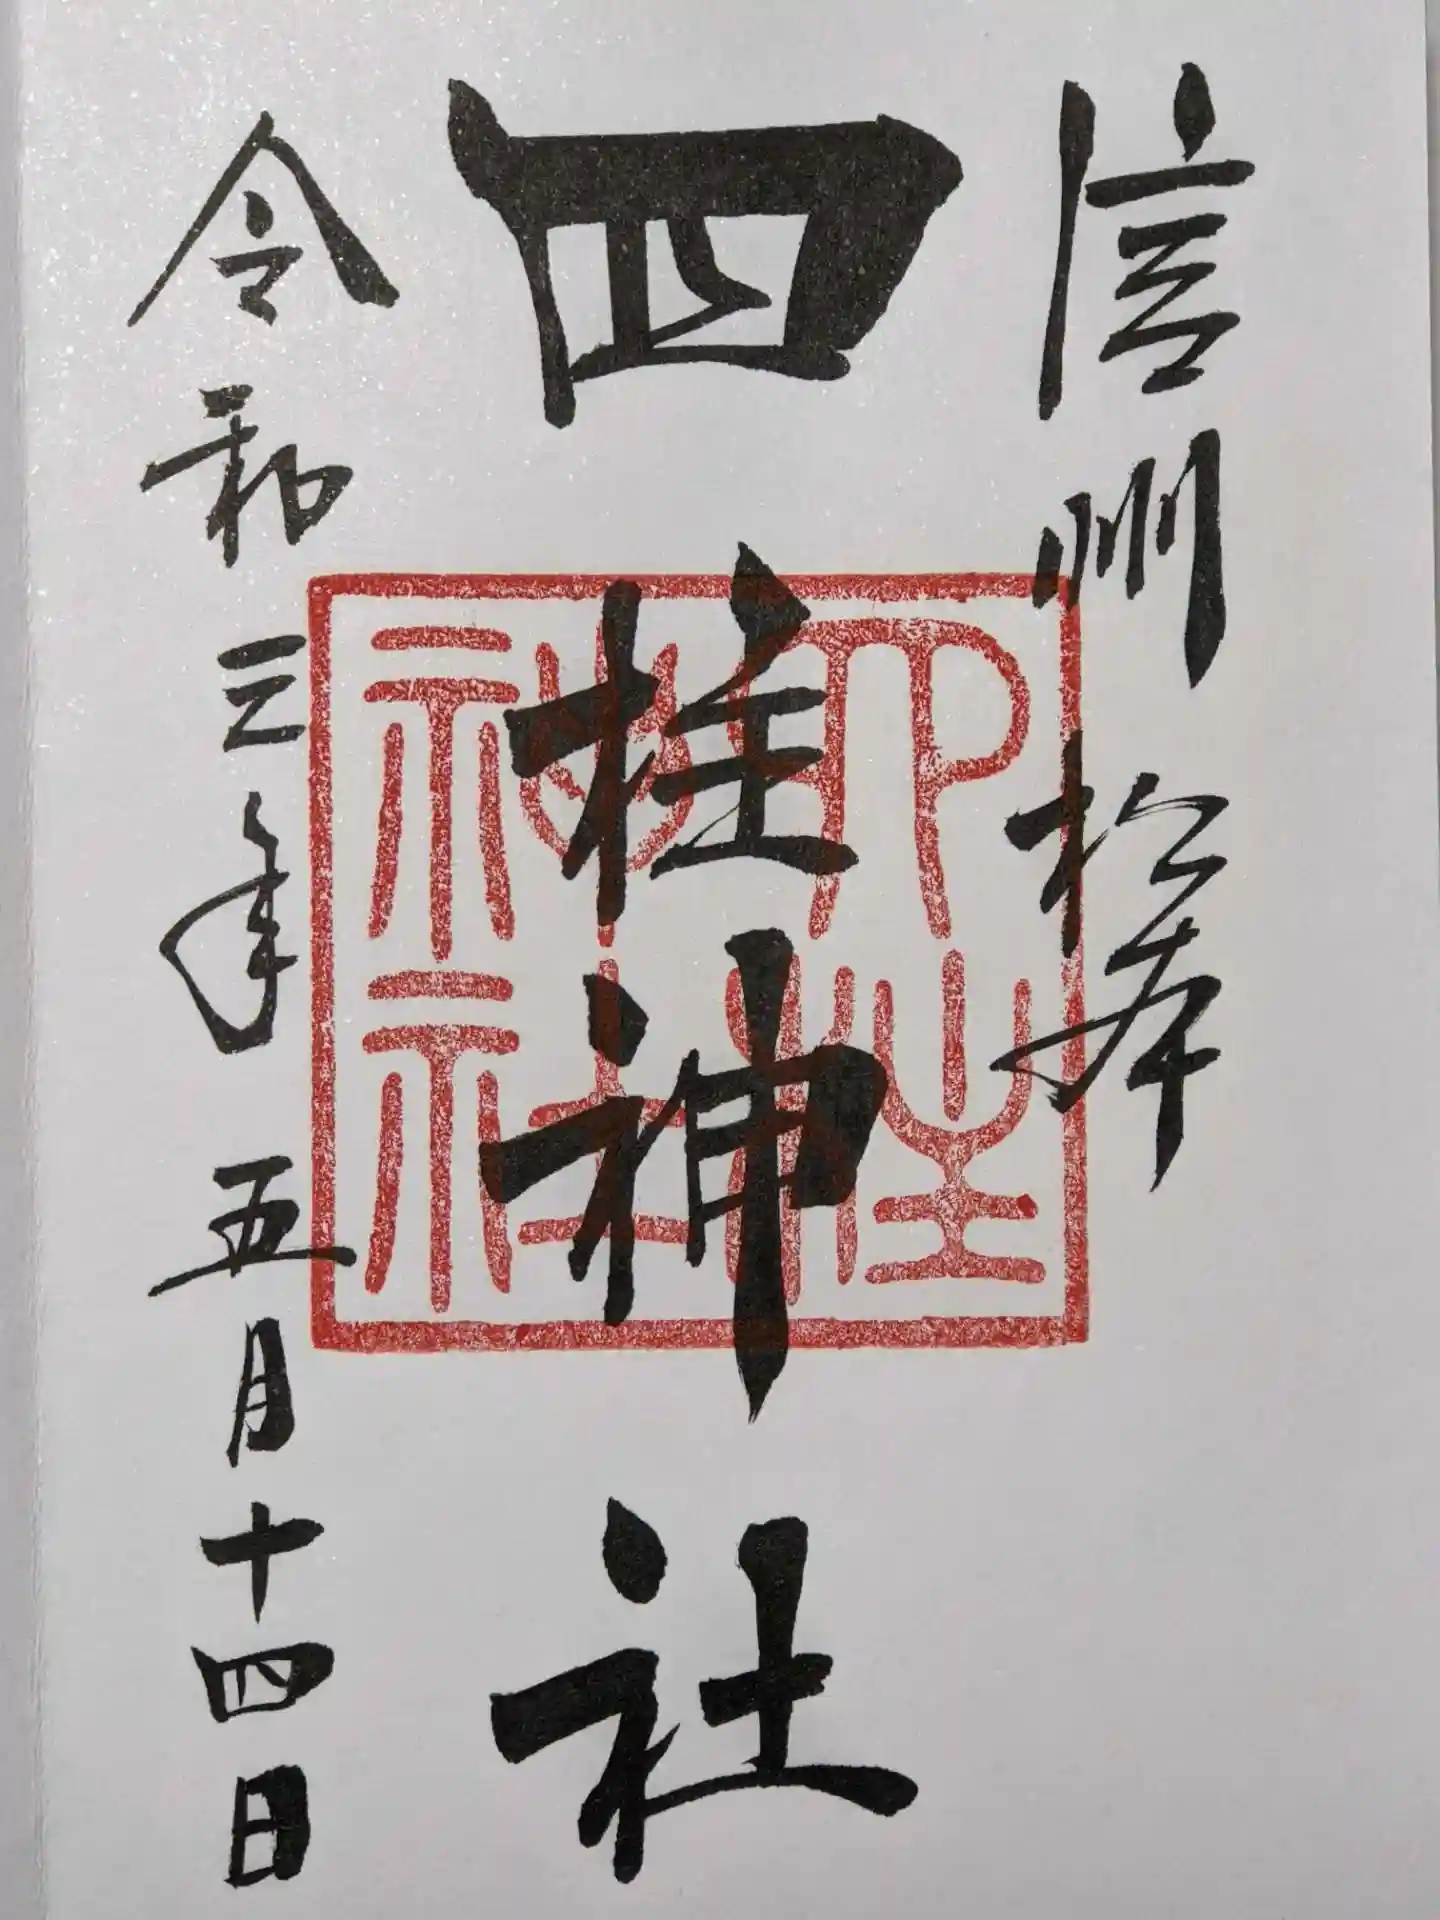 信州松本
四柱神社
令和三年五月十四日
四柱
神社